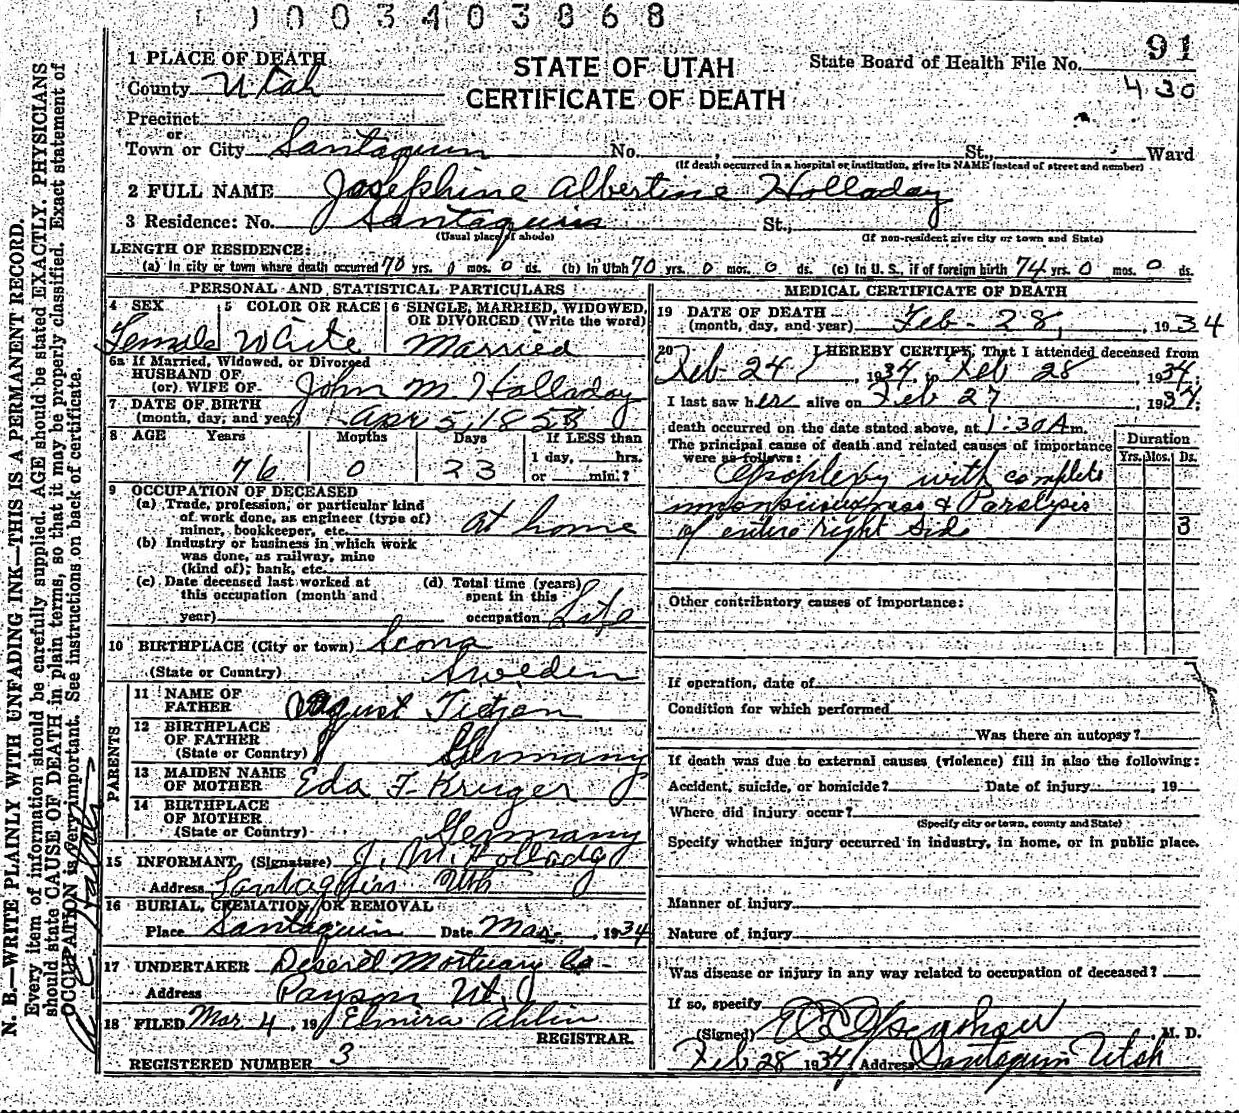 003403068
91
State Board of Health File No.
430
STATE OF UTAH
CERTIFICATE OF DEATH
1 PLACE OF DEATH
County Utah
Precinct
or
Town or City Santaquin No. , St., Ward
(If death occurred in a hospital or institution, give its NAME instead of street and number)
2 FULL NAME Josephine Albertine Holladay
3 Residence: No. Santaquin St.,
(Usual place of abode) (If non-resident give city or town and State)
LENGTH OF RESIDENCE:
(a) In city or town where death occurred 70 yrs. 0 mos. 0 ds. (b) In Utah 70 yrs. 0 mos. 0 ds. (c) In U. S., if of foreign birth 74 yrs. 0 mos. 0 ds.
PERSONAL AND STATISTICAL PARTICULARS
4 SEX
Female
5 COLOR OR RACE
White
6 SINGLE, MARRIED, WIDOWED,
OR DIVORCED (Write the word)
Married
6a If Married, Widowed, or Divorced
HUSBAND OF
(or) WIFE OF John M Holladay
7 DATE OF BIRTH
(month, day, and year) Apr 5, 1858
8 AGE Years Months Days If LESS than
1 day, hrs.
76 0 23 or min.?
9 OCCUPATION OF DECEASED
(a) Trade, profession, or particular kind
of work done, as engineer (type of)
miner, bookkeeper, etc. at home
(b) Industry or business in which work
was done, as railway, mine
(kind of); bank, etc.
(c) Date deceased last worked at
this occupation (month and
year)
(d) Total time (years)
spent in this
occupation Life
10 BIRTHPLACE (City or town) Scona
(State or Country) Sweden
PARENTS
11 NAME OF
FATHER August Tietjen
12 BIRTHPLACE
OF FATHER
(State or Country) Germany
13 MAIDEN NAME
OF MOTHER Eda F. Kruger
14 BIRTHPLACE
OF MOTHER
(State or Country) Germany
15 INFORMANT (Signature) J. M. Holladay
Address Santaquin Utah
16 BURIAL, CREMATION, OR REMOVAL
Place Santaquin Date Mar , 1934
17 UNDERTAKER Deseret Mortuary Co
Address Payson Ut.
18 FILED Mar 4, 19 Elmira Ahlin
REGISTRAR
REGISTERED NUMBER 3
MEDICAL CERTIFICATE OF DEATH
19 DATE OF DEATH
(month, day, and year) Feb - 28, , 1934
20 I HEREBY CERTIFY, That I attended deceased from
Feb 24 , 1934, to Feb 28 , 1934.
I last saw her alive on Feb 27 , 1934.
death occurred on the date stated above, at 1:30 A m.
The principal cause of death and related causes of importance
were as follows:
Duration
Yrs. Mos. Ds.
Apoplexy with complete
unconsciousness & Paralysis
of entire right side 3
Other contributory causes of importance:
If operation, date of
Condition for which performed
Was there an autopsy?
If death was due to external causes (violence) fill in also the following:
Accident, suicide, or homicide? Date of injury , 19
Where did injury occur?
(Specify city or town, county and State)
Specify whether injury occurred in industry, in home, or in public place.
Manner of injury
Nature of injury
Was disease or injury in any way related to occupation of deceased?
If so, specify
(Signed) M. D.
Feb 28 1934 Address Santaquin Utah
N. B.—WRITE PLAINLY WITH UNFADING INK—THIS IS A PERMANENT RECORD.
Every item of information should be carefully supplied. AGE should be stated EXACTLY. PHYSICIANS
should state CAUSE OF DEATH in plain terms, so that it may be properly classified. Exact statement of
OCCUPATION is very important. See instructions on back of certificate.